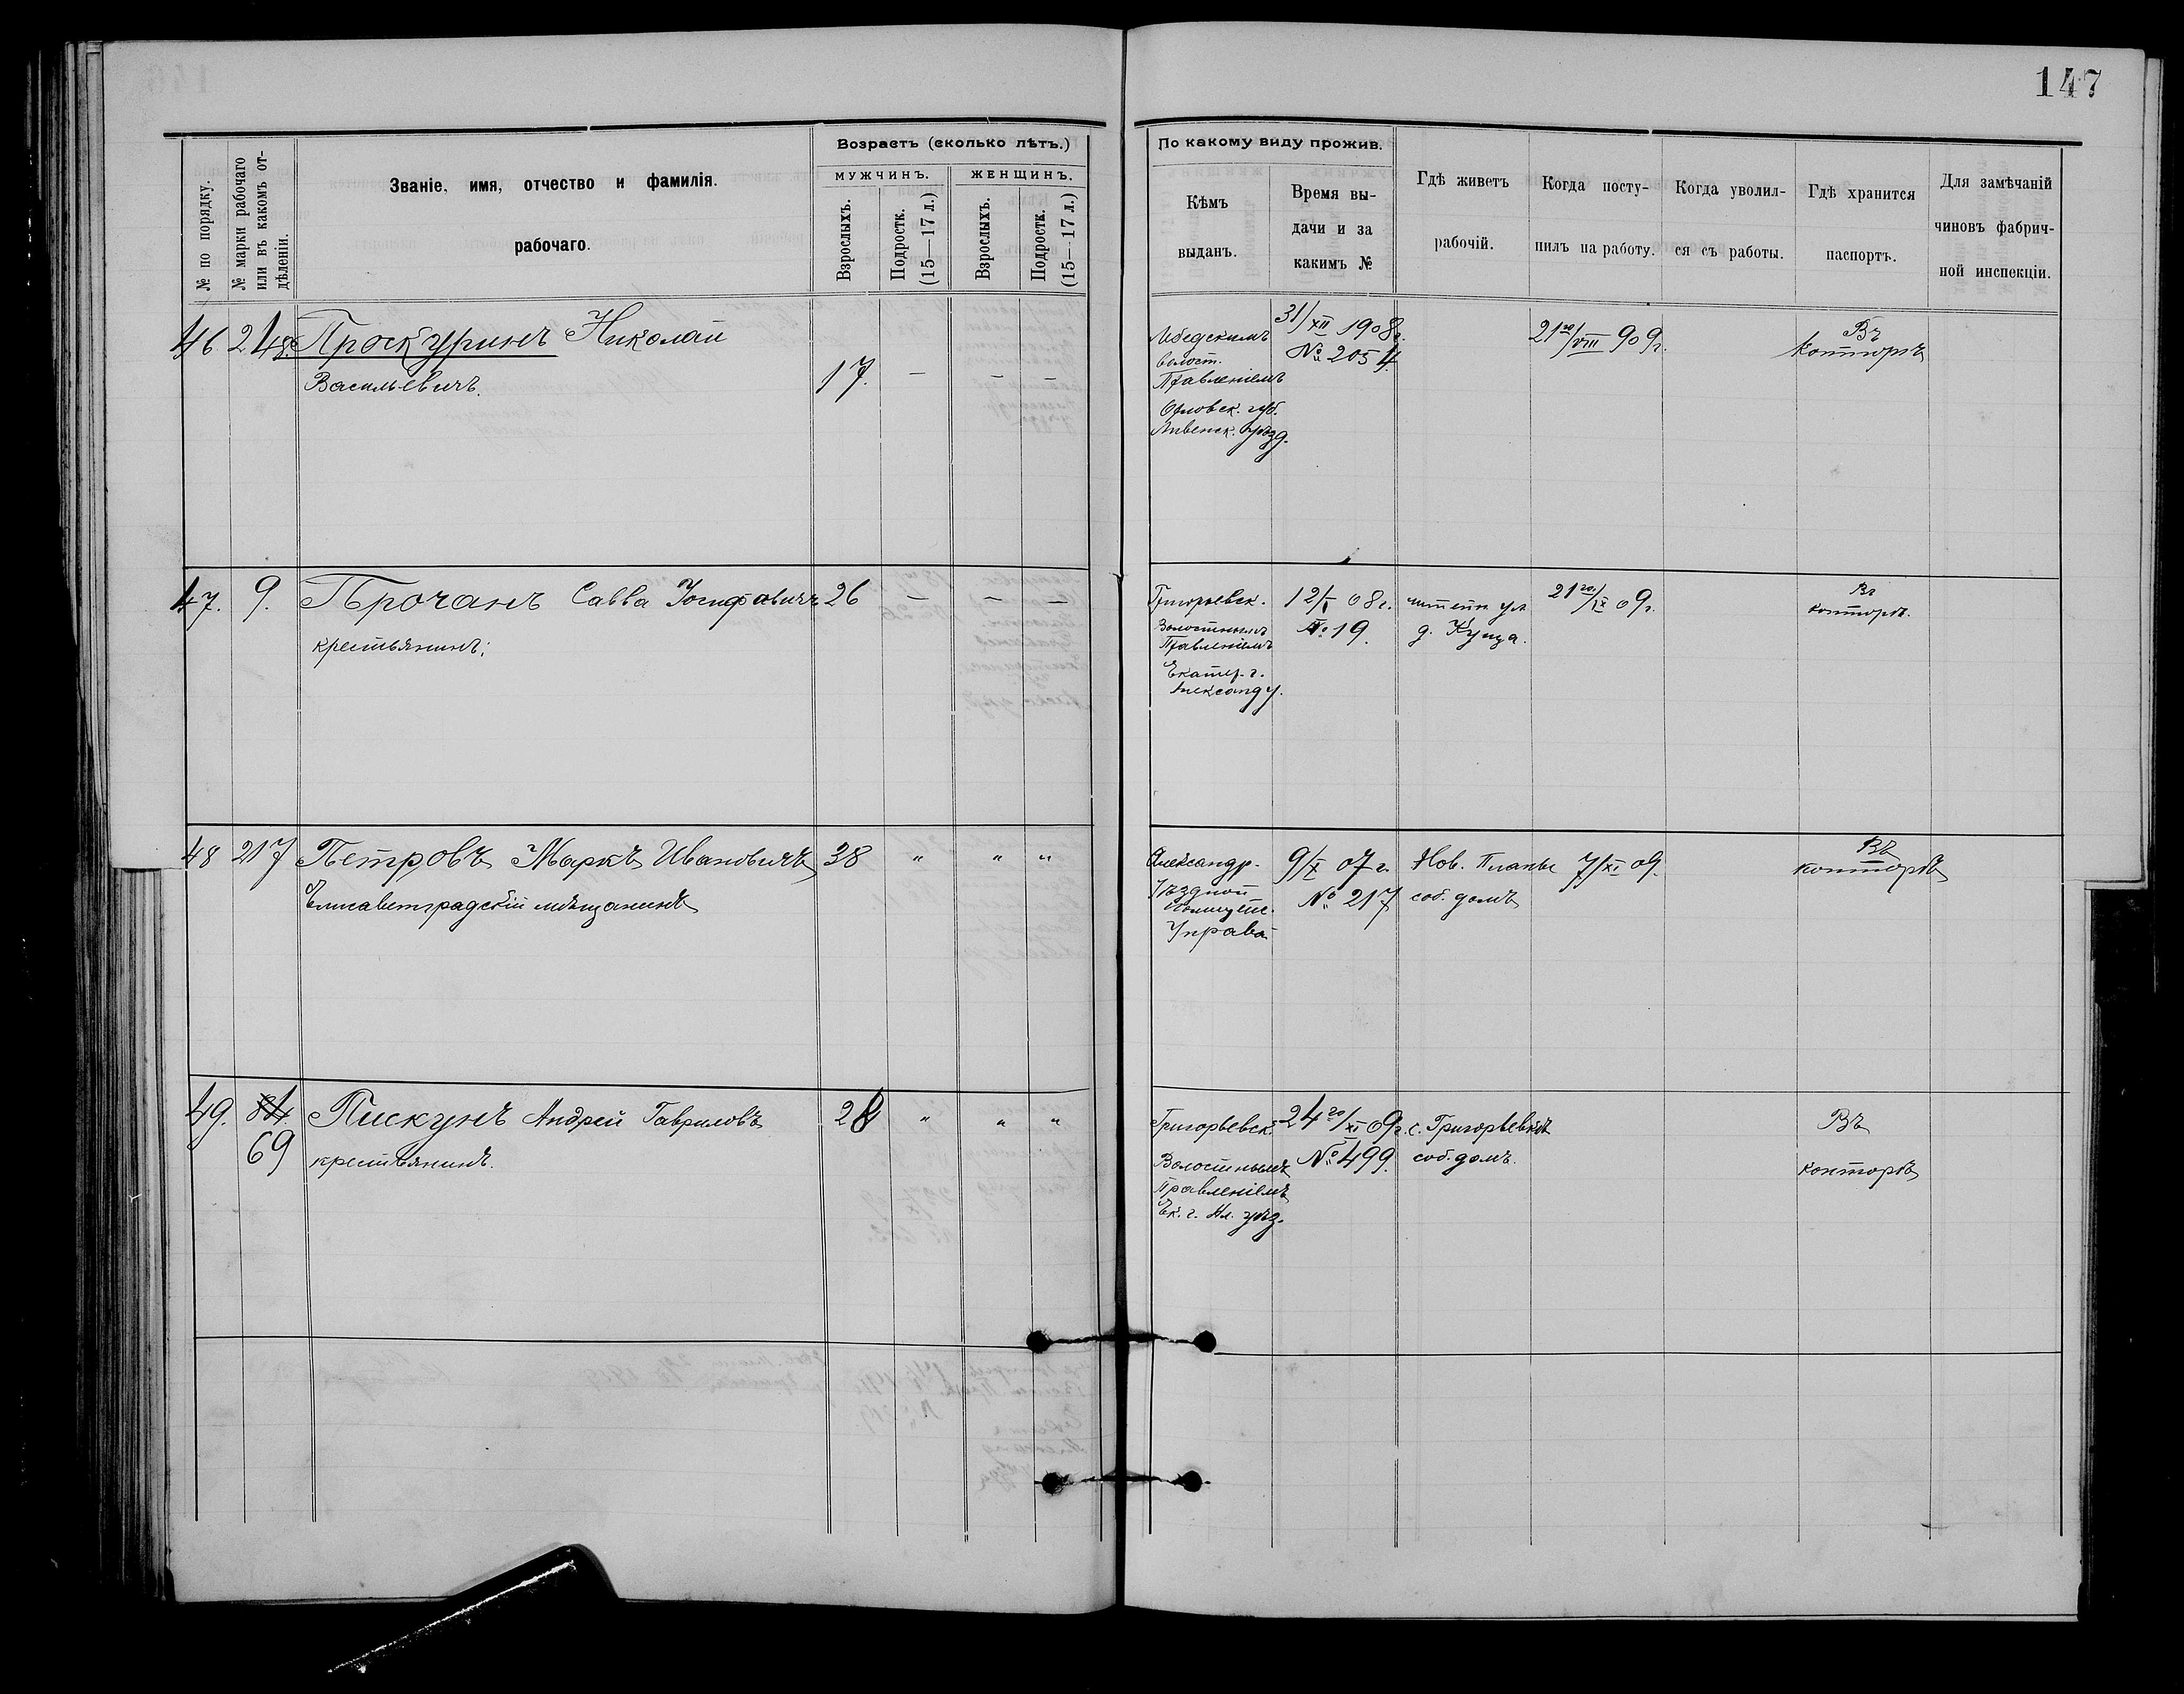 147
Возрастъ (сколько лѣтъ.)
МУЖЧИНЪ. ЖЕНЩИНЪ.
№ по порядку.
№ марки рабочаго или въ какомъ отдѣленіи.
Званіе, имя, отчество и фамилія.
рабочаго.
Взрослыхъ.
Подростк. (15—17 л.)
Взрослыхъ.
Подростк. (15—17 л.)
По какому виду прожив.
Кѣмъ
выданъ.
Время вы-
дачи и за
какимъ №
Гдѣ живетъ
рабочій.
Когда посту-
пилъ на работу.
Когда уволил-
ся съ работы.
Гдѣ хранится
паспортъ.
Для замѣчаній
чиновъ фабрич-
ной инспекціи.
46 248. Проскуринъ Николай
Васильевичъ. 17. — — —
волост.
Правленіемъ
Орловск. губ.
Ливенск. уѣзд.
31/XII 1908г.
№ 2054.
21го/VIII 909г.
Въ
конторѣ
47. 9. Прочанъ Савва Іосифовичъ 26 — — —
крестьянинъ.
Григорьевск.
Волостнымъ
Правленіемъ
Екатер. г.
Александ. у.
12/I 08г.
№ 19.
д. Купца.
21го/IX 09г.
Въ
конторѣ.
48 217 Петровъ Маркъ Ивановичъ 38 " " "
Елисаветградскій мѣщанинъ
Александр.
Уѣздной
Полицейс.
Управой
9/X 07г.
№ 217
Нов. Планы
соб. домъ
7/XI 09.
Въ
конторѣ
49. 84.
69
Пискунъ Андрей Гавриловъ 28 " " "
крестьянинъ.
Григорьевск.
Волостнымъ
Правленіемъ
Ек. г. Ал. уѣз.
24го/XI 09г.
№ 499.
с. Григорьевка
соб. домъ.
Въ
конторѣ